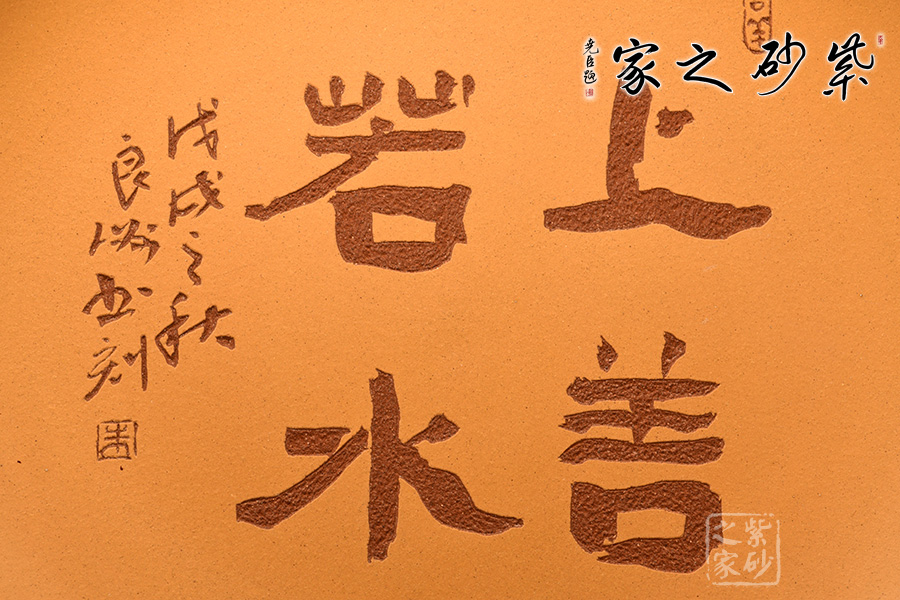 上善
若水
戊戌之秋
良海书刻
紫砂之家
尧臣题
紫砂之家